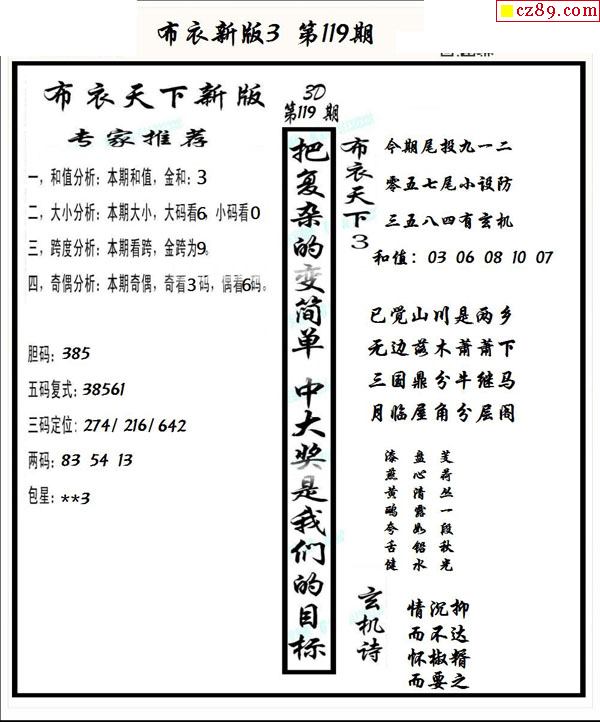 cz89.com
布衣新版3 第119期
布衣天下新版
专家推荐
一，和值分析：本期和值，金和：3
二，大小分析：本期大小，大码看6，小码看0
三，跨度分析：本期看跨，金跨为9。
四，奇偶分析：本期奇偶，奇看3码，偶看6码。
胆码：385
五码复式：38561
三码定位：274/216/642
两码：83 54 13
包星：**3
3D
第119期
把复杂的变简单 中大奖是我们的目标
布衣天下3
今期尾投九一二
零五七尾小设防
三五八四有玄机
和值：03 06 08 10 07
已觉山川是两乡
无边落木萧萧下
三国鼎分牛继马
月临屋角分层阁
芰荷丛一段秋光
盘心清露如铅水
漆燕黄鹂夸舌健
玄机诗
情沉抑
而不达
怀椒糈
而要之